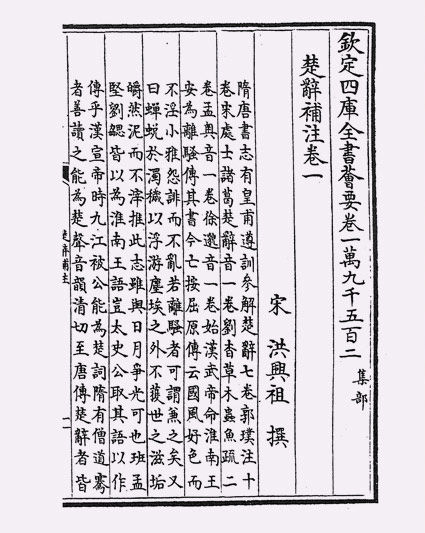 欽定四庫全書薈要卷一萬九千五百二 集部
楚辭補注卷一
宋 洪興祖 撰
隋唐書志有皇甫遵訓參解楚辭七卷郭璞注十
卷宋處士諸葛楚辭音一卷劉杳草木蟲魚疏二
卷孟奥音一卷徐邈音一卷始漢武帝命淮南王
安為離騷傳其書今亡按屈原傳云國風好色而
不淫小雅怨誹而不亂若離騷者可謂兼之矣又
曰蟬蛻於濁穢以浮游塵埃之外不獲世之滋垢
皭然泥而不滓推此志雖與日月爭光可也班孟
堅劉勰皆以為淮南王語豈太史公取其語以作
傳乎漢宣帝時九江被公能為楚詞隋有僧道騫
者善讀之能為楚聲音韻清切至唐傳楚辭者皆
楚辭補注